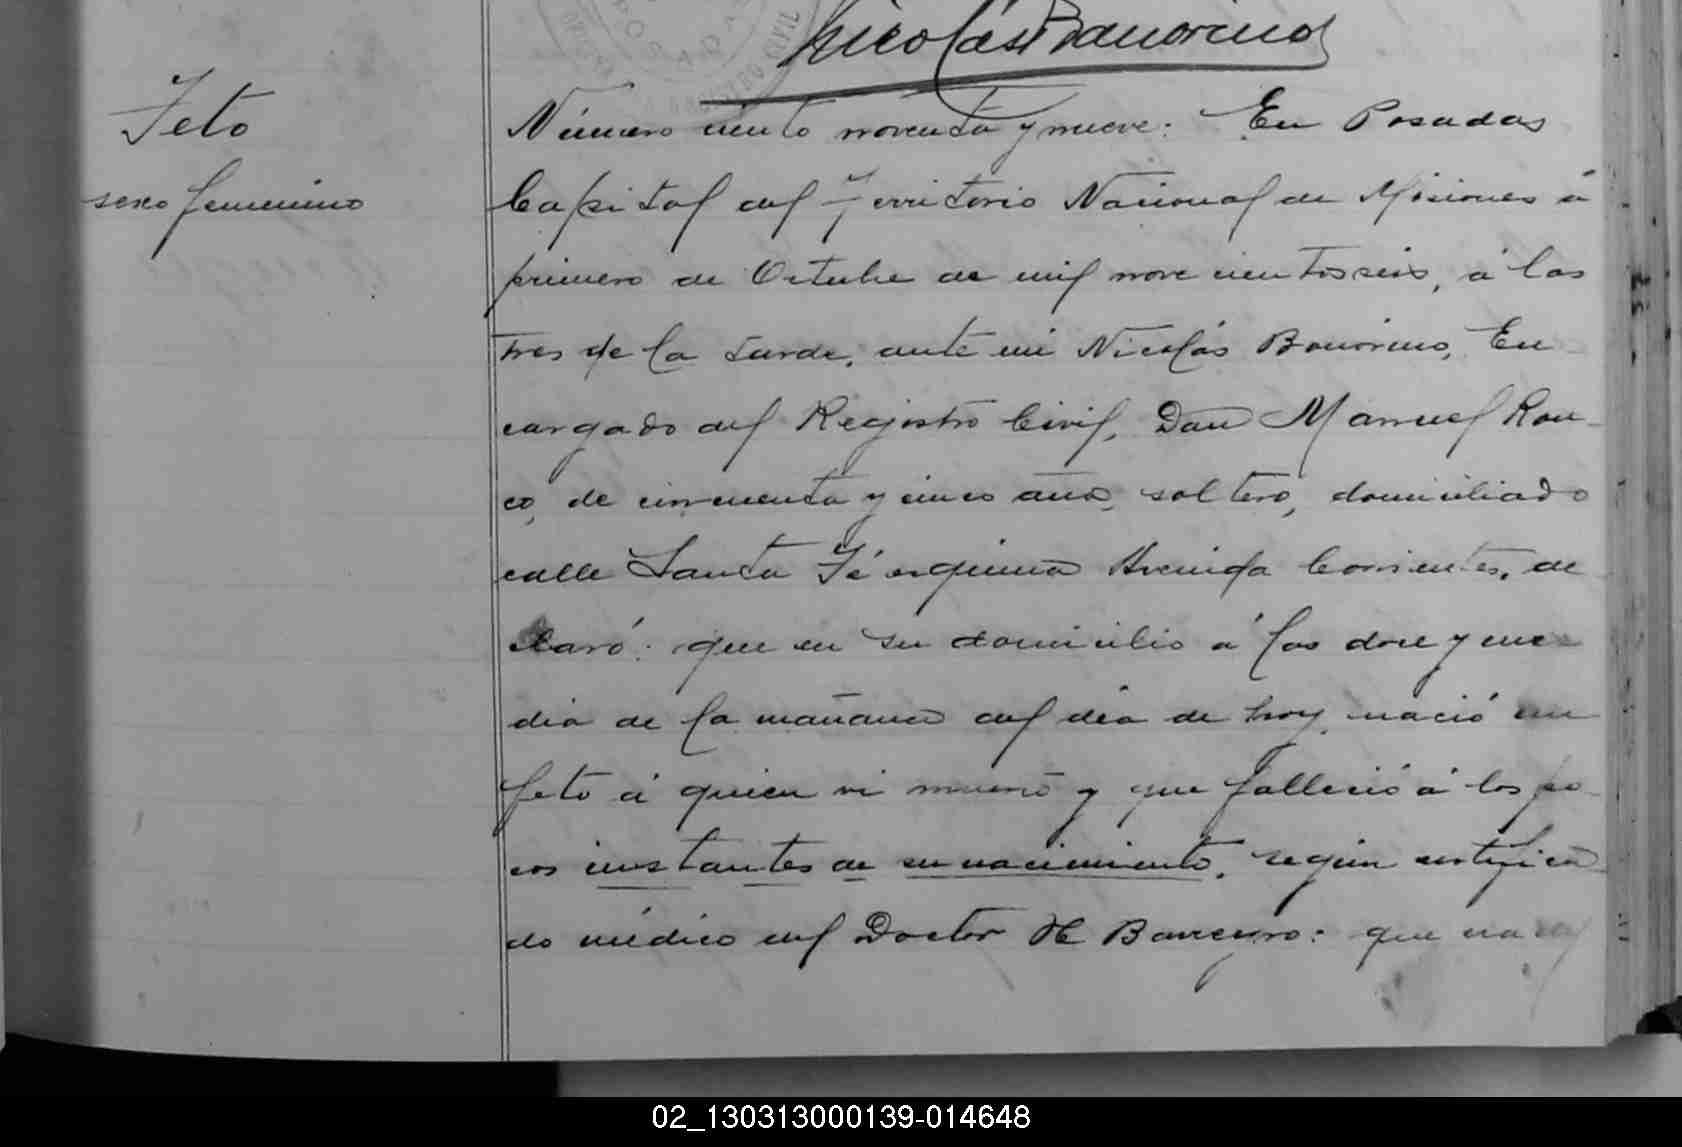 Nicolás Bonorino
Feto
sexo femenino
Número ciento noventa y nueve: En Posadas
Capital del Territorio Nacional de Misiones á
primero de Octubre de mil novecientos seis, á las
tres de la tarde, ante mi Nicolás Bonorino, En
cargado del Registro Civil, Don Manuel Ron-
co, de cincuenta y cinco años, soltero, domiciliado
calle Santa Fé esquina Avenida Corrientes, de
claró: que en su domicilio á las doce y me
dia de la mañana del dia de hoy nació un
feto á quien vi muerto y que falleció á los po-
cos instantes de su nacimiento, según certifica
do médico del Doctor H Barreyro: que era
02_130313000139-014648